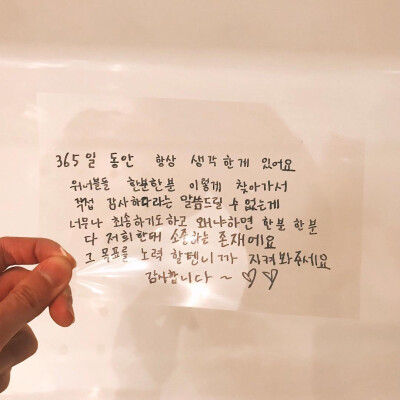 365일 동안 항상 생각한게 있어요
워너블들 한분한분 이렇게 찾아가서
직접 감사하다라는 말씀드릴 수 없는게
너무나 죄송하기도하고 왜냐하면 한분 한분
다 저희한테 소중하는 존재에요
그 목표를 노력 할텐니까 지켜봐주세요
감사합니다 ~ ♡♡